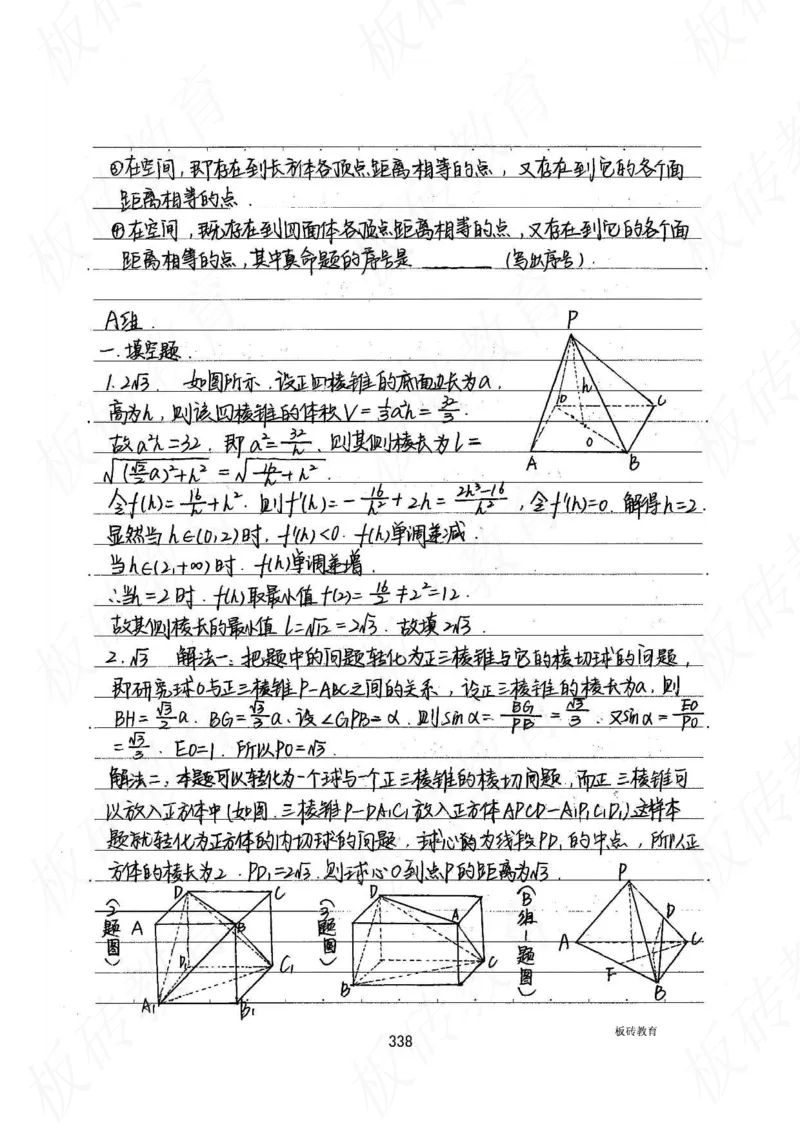 ③在空间,即存在到长方体各顶点距离相等的点,又存在到它的各个面
距离相等的点.
④在空间,既存在到四面体各顶点距离相等的点,又存在到它的各个面
距离相等的点,其中真命题的序号是 ______ (写出序号).
A组.
一.填空题.
1.2√3. 如图所示.设正四棱锥的底面边长为a,
高为h,则该四棱锥的体积V=1/3a²h=32/3.
故a²h=32.即a²=32/h.则其侧棱长为l=
√((√2/2a)²+h²)=√(16/h+h²).
令f(h)=16/h+h².则f'(h)=-16/h²+2h=(2h³-16)/h²,令f'(h)=0.解得h=2.
显然当h∈(0,2)时,f'(h)<0.f(h)单调递减.
当h∈(2,+∞)时.f(h)单调递增.
∴当h=2时.f(h)取最小值f(2)=16/2+2²=12.
故其侧棱长的最小值l=√12=2√3.故填2√3.
2.√3 解法一:把题中的问题转化为正三棱锥与它的棱切球的问题,
即研究球O与正三棱锥P-ABC之间的关系,设正三棱锥的棱长为a,则
BH=√3/2a.BG=√3/3a.设∠GPB=α.则sinα=BG/PB=√3/3.又sinα=EO/PO
=√3/3.EO=1.所以PO=√3.
解法二:本题可以转化为一个球与一个正三棱锥的棱切问题,而正三棱锥可
以放入正方体中(如图.三棱锥P-DA₁C₁放入正方体APCD-A₁P₁C₁D₁)这样本
题就转化为正方体的内切球的问题,球心为线段PD₁的中点,所以正
方体的棱长为2.PD₁=2√3.则球心O到点P的距离为√3.
P
h
D
C
O
A
B
(2题图)
D
C
A
B
D₁
C₁
A₁
B₁
(3题图)
D
A
B
C
(B组1题图)
P
D
A
C
F
B
338
板砖教育